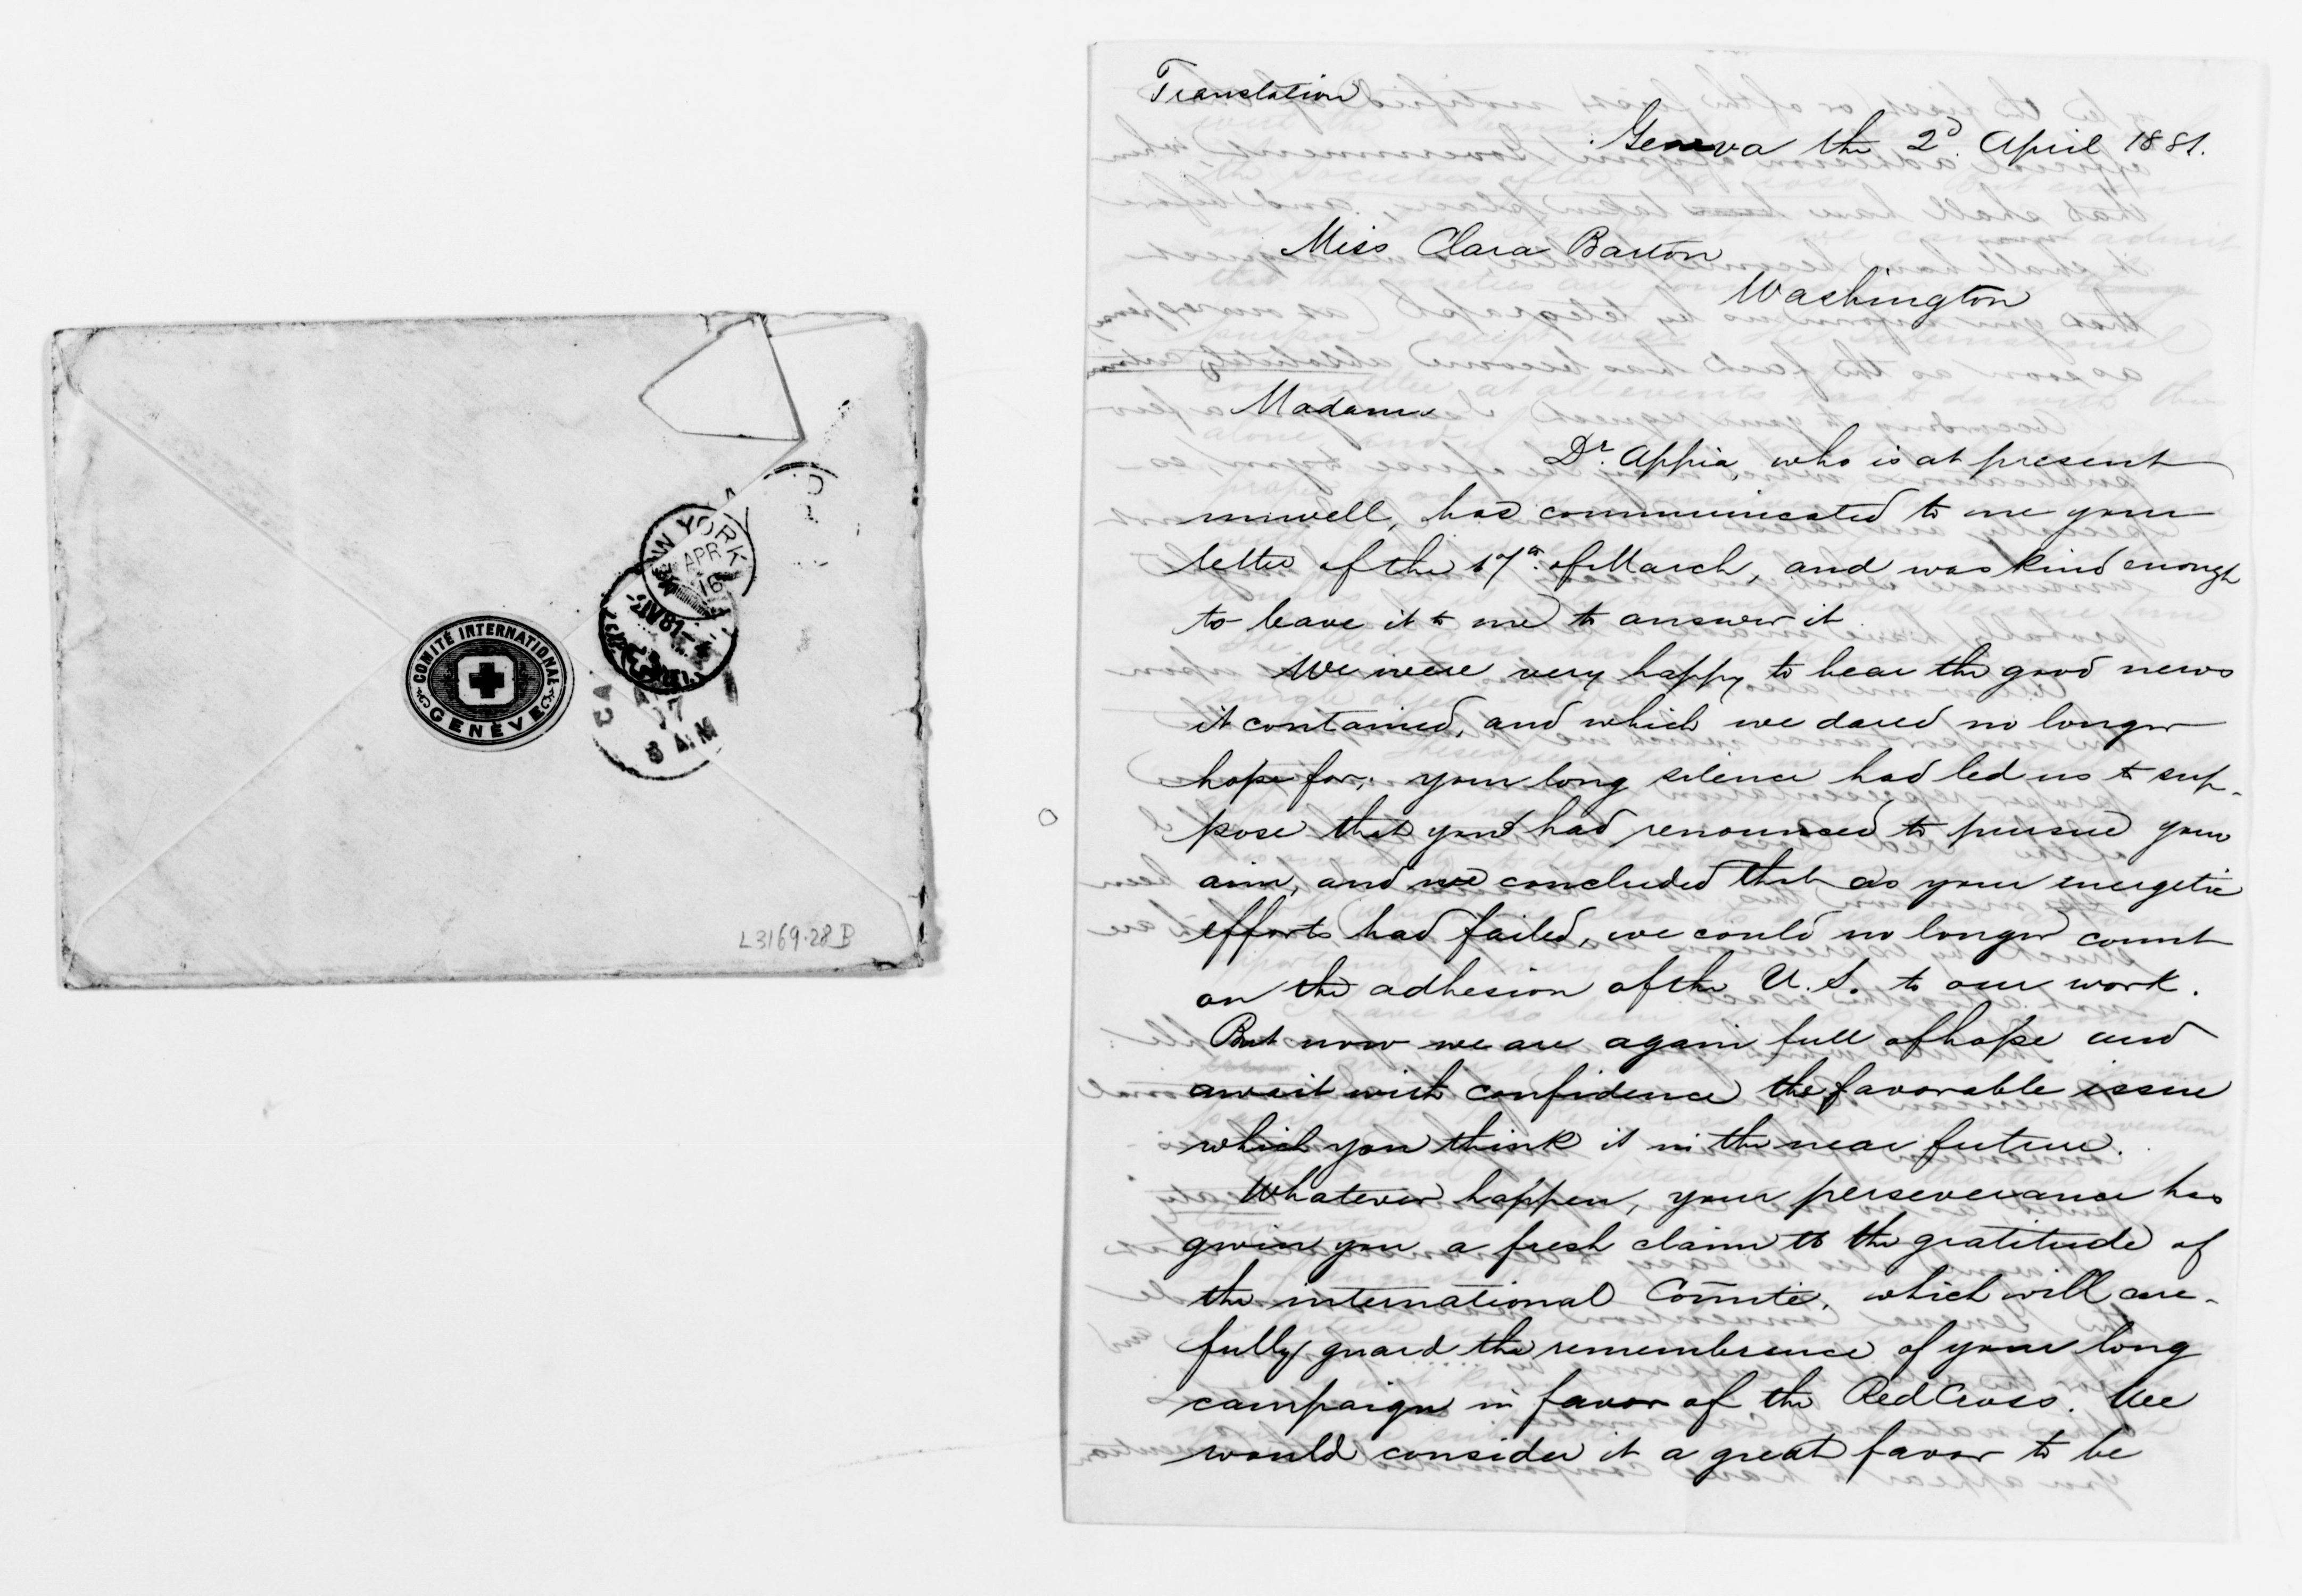 COMITÉ INTERNATIONAL
GENÈVE
NEW YORK
APR
16
8 AM
L3169.28 B
Translation
Geneva the 2d. April 1881.
Miss Clara Barton
Washington
Madam
Dr. Appia, who is at present
unwell, has communicated to me your
letter of the 17th. of March, and was kind enough
to leave it to me to answer it.
We were very happy to hear the good news
it contained, and which we dared no longer
hope for; your long silence had led us to sup-
pose that you had renounced to pursue your
aim, and we concluded that as your energetic
efforts had failed, we could no longer count
on the adhesion of the U. S. to our work.
But now we are again full of hope and
await with confidence the favorable issue
which you think is in the near future.
Whatever happen, your perseverance has
given you a fresh claim to the gratitude of
the international Comite, which will care-
fully guard the remembrance of your long
campaign in favor of the Red Cross. We
would consider it a great favor to be